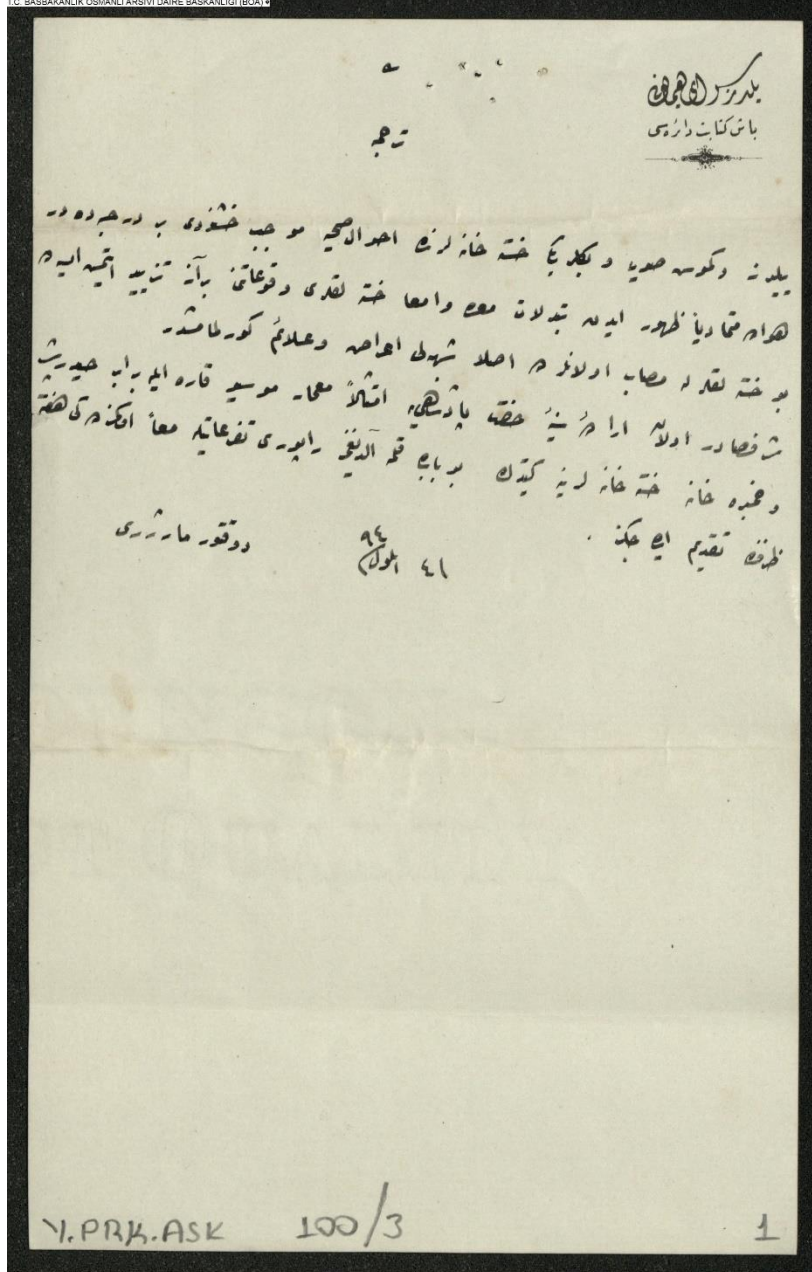 T.C. BAŞBAKANLIK OSMANLI ARŞİVİ DAİRE BAŞKANLIĞI (BOA)
يلديز سراى همايونى
باش كتابت دائره سى
ترجمه
ييلديز و كموش صويى و خسته خانه لرنده احوال صحيه موجب خشنودى بر درجه ده در
هواده متماديا ظهور ايدن تبدلات معده وامعا خسته لقلرى وقوعاتنى بر آز تزييد ايتمش ايسه ده
بو خسته لقلره مصاب اولانلرده اصلا شبهه لى اعراض وعلائم كورلمامشدر
شرفصادر اولان اراده سنيه حضرت پادشاهى يه امتثالاً معمار موسيو ايله برابر حيدرپاشا
وخمبره خانه خسته خانه لرينه كيتدك بو بابده قلمه آلديغمز راپورى تفرعاتيله معاً اوكمزده كى هفته
ظرفنده تقديم ايده جكز .
١٤ ايلول ٩٤
دوقتور
Y.PRK.ASK 100/3 1